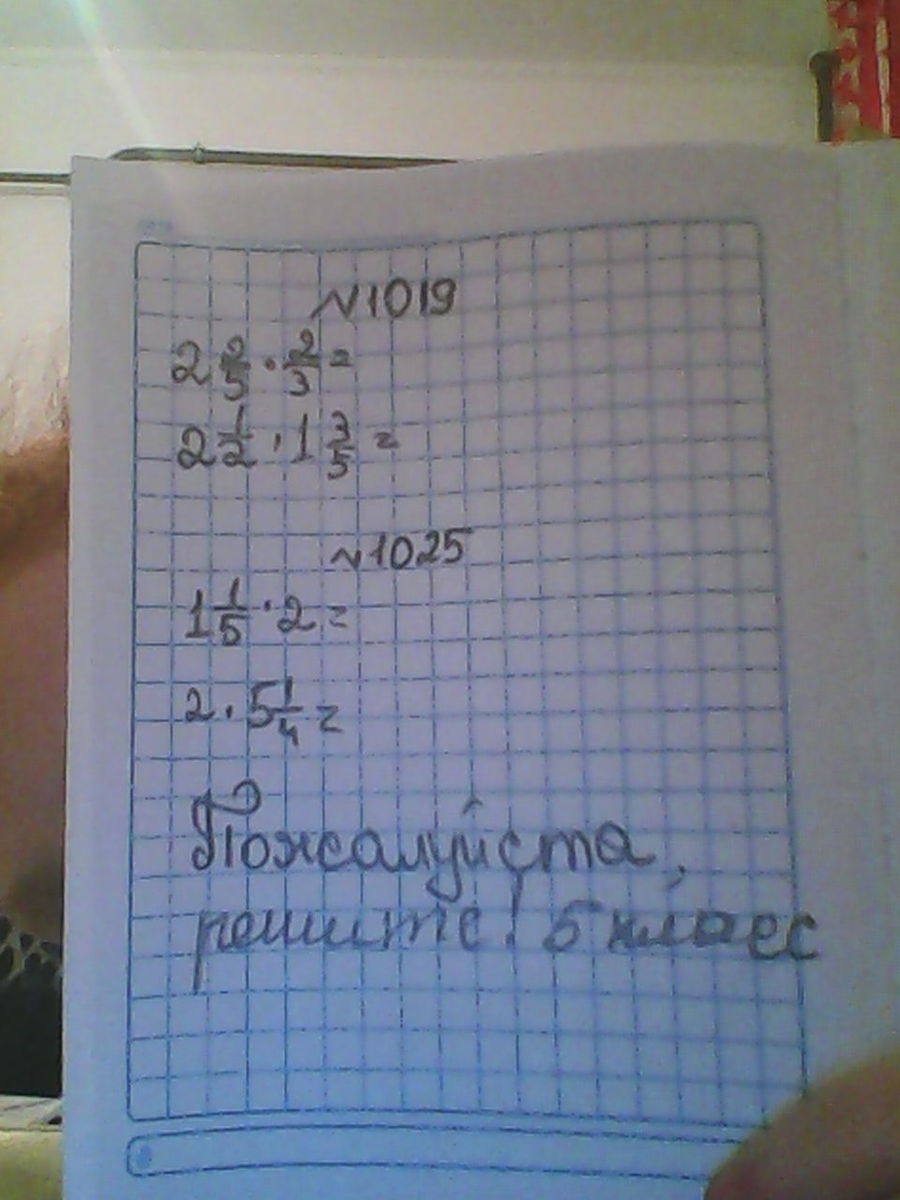 №1019
2 2/5 · 2/3 =
2 1/2 · 1 3/5 =
№1025
1 1/5 · 2 =
2 · 5 1/4 =
Пожалуйста,
решите! 5 класс